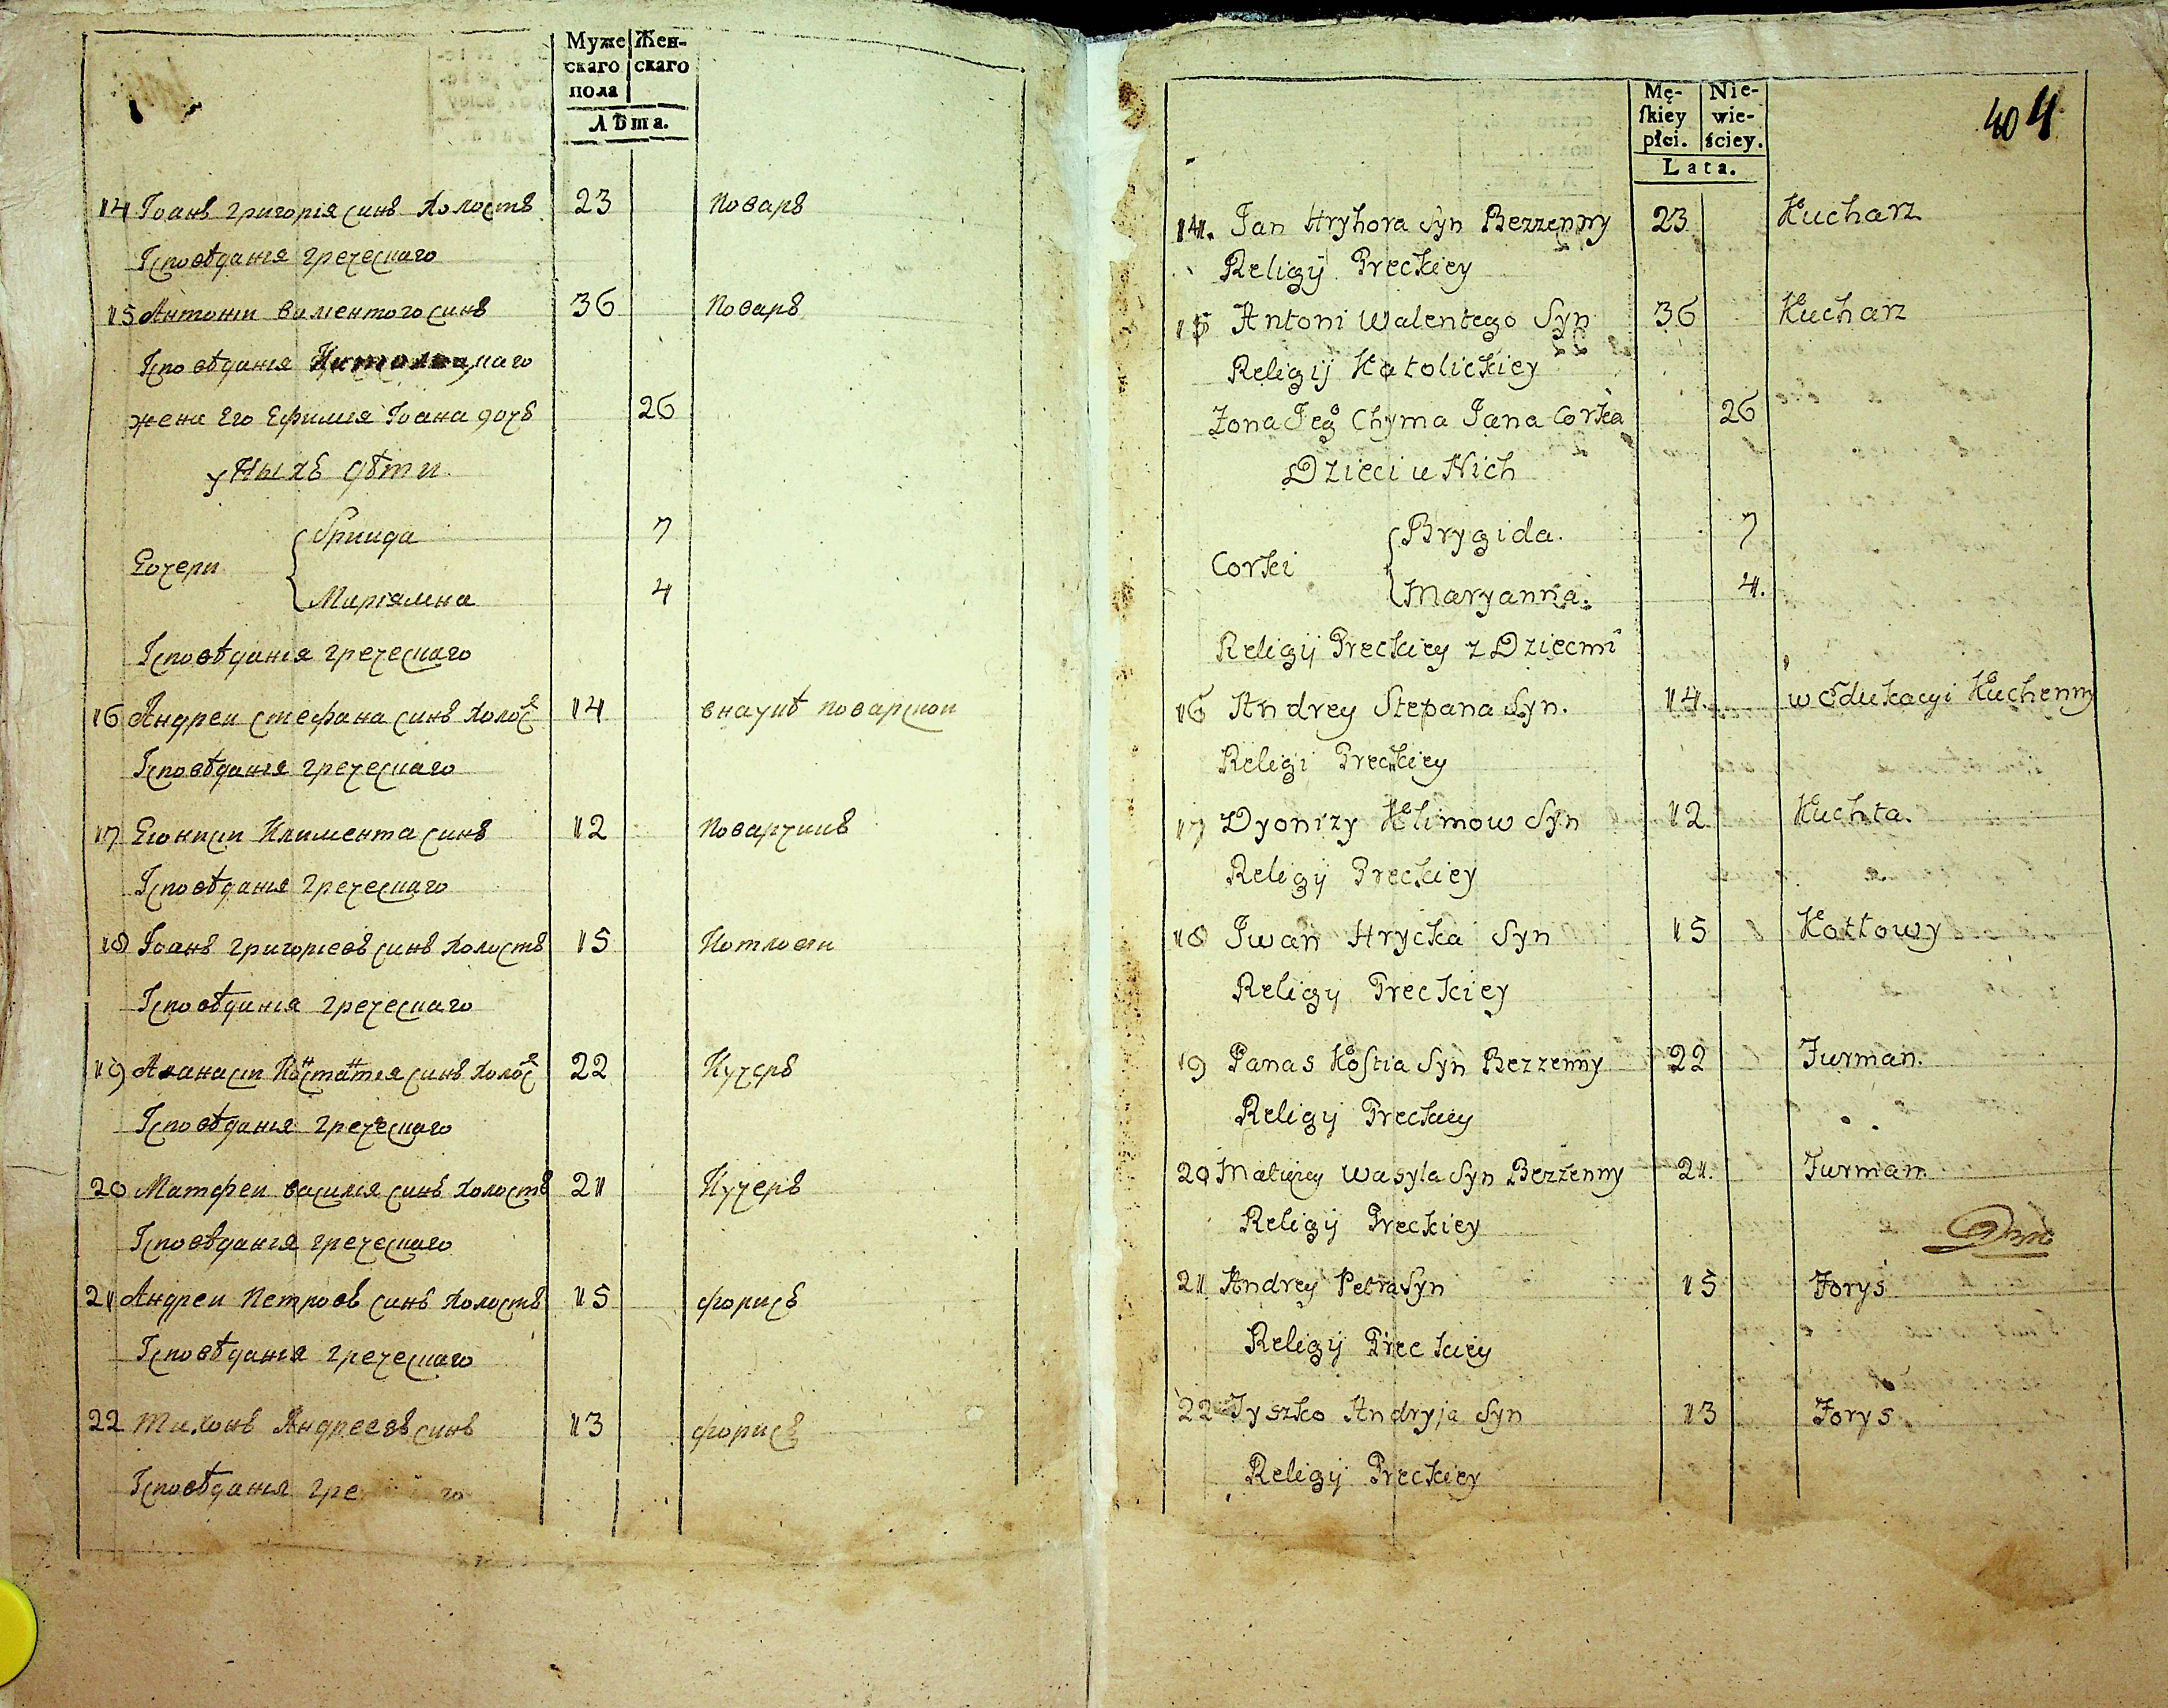 Муже
скаго
пола
Жен-
скаго
Лѣта.
14 Іоанъ григорія синъ холостъ 23 Поваръ
Ісповѣданія греческаго
15 Антони валентого синъ 36 Поваръ
Ісповѣданія
жена Его Ефимія Іоана дочъ 26
у Ныхъ дѣти
Дочери
Бригида 7
Маріянна 4
Ісповѣданія греческаго
16 Андреи стефана синъ холос 14 внауцѣ поварскои
Ісповѣданія греческаго
17 Діониси Климента синъ 12 Поварчикъ
Ісповѣданія греческаго
18 Іоанъ григоріевъ синъ холостъ 15 Котлови
Ісповѣданія греческаго
19 Афанаси синъ холос 22 Кучеръ
Ісповѣданія греческаго
20 Матфеи василія синъ холостъ 21 Кучеръ
Ісповѣданія греческаго
21 Андреи Петровъ синъ холостъ 15 форисъ
Ісповѣданія греческаго
22 Тихонъ Андреевъ синъ 13 форисъ
Ісповѣданія гре го
Mę-
skiey
płci.
Nie-
wie-
ściey.
Lata.
404
14. Jan Hryhora Syn Bezzenny 23 Kucharz
Religij Greckiey
15 Antoni Walentego Syn 36 Kucharz
Religij Katolickiey
Zona Jeg° Chyma Jana Corka 26
Dzieci u Nich
Corki
Brygida. 7
Maryanna. 4.
Religij Greckiey z Dziecmi
16 Andrey Stepana Syn. 14. w Edukacyi Kuchenny
Religi Greckiey
17 Dyonizy Klimow Syn 12 Kuchta.
Religij Greckiey
18 Iwan Hrycka Syn 15 Kotłowy
Religij Greckiey
19 Panas Kostia Syn Bezzenny 22 Furman.
Religij Greckiey
20 Matwiey Wasyla Syn Bezżenny 21. Furman
Religij Greckiey
21 Andrey Petra Syn 15 Foryś
Religij Greckiey
22 Tyszko Andryja Syn 13 Forys
Religij Greckiey